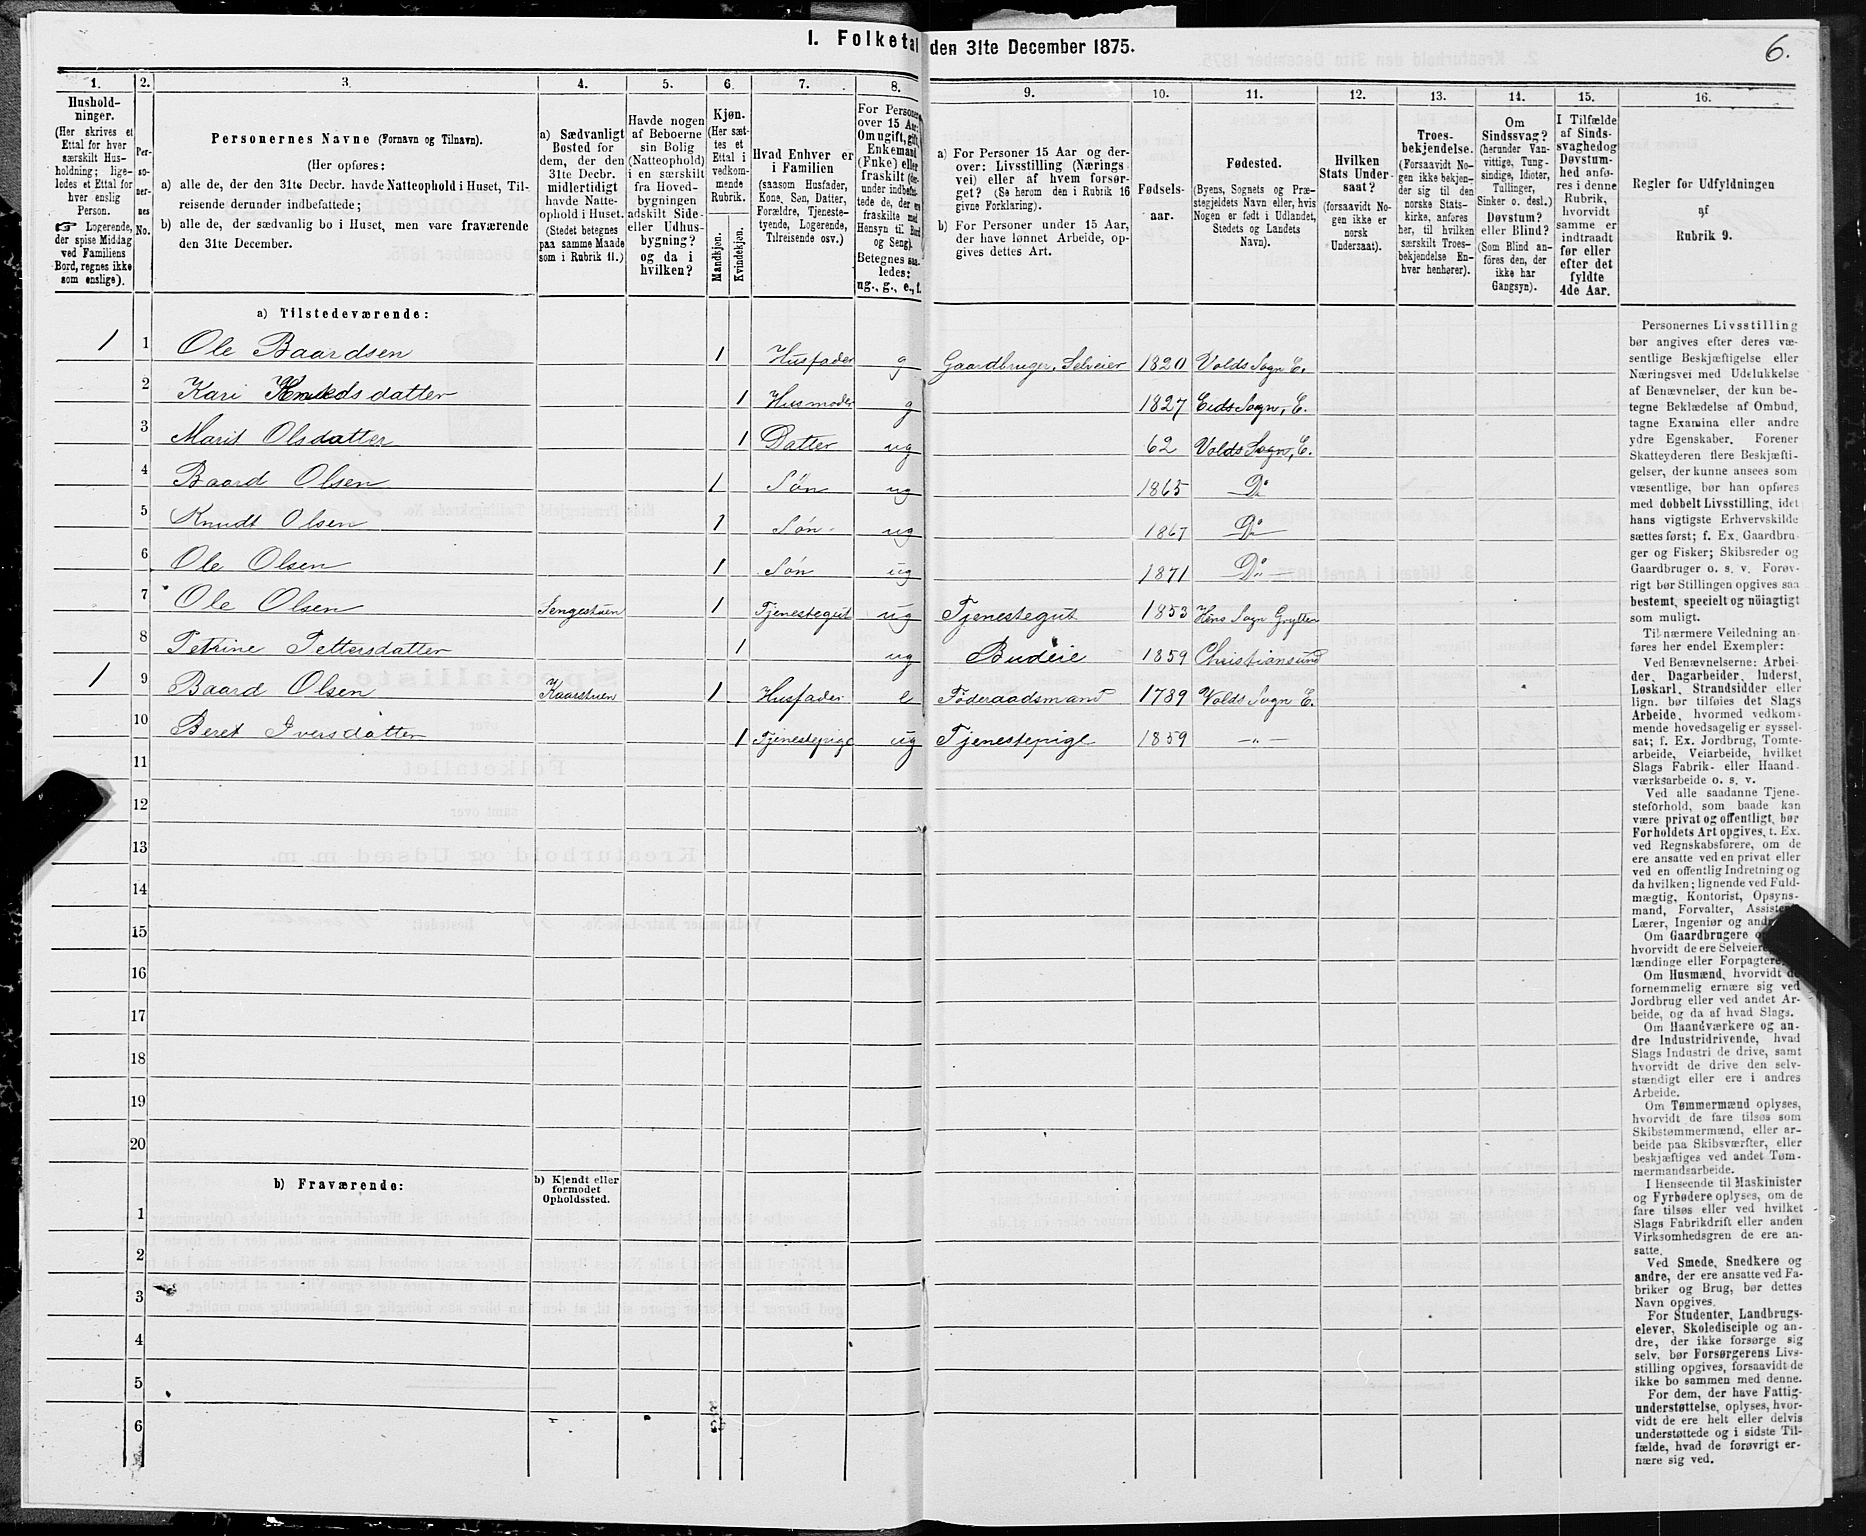 I. Folketal den 31te December 1875.
6.
1.
2.
3.
4.
5.
6.
7.
8.
9.
10.
11.
12.
13.
14.
15.
16.
Hushold-
ninger.
(Her skrives et
Ettal for hver
særskilt Hus-
holdning; lige-
ledes et Ettal for
hver enslig
Person.
☞ Logerende,
der spise Middag
ved Familiens
Bord, regnes ikke
som enslige).
Per-
so-
ner-
nes
No.
Personernes Navne (Fornavn og Tilnavn).
(Her opføres:
a) alle de, der den 31te Decbr. havde Natteophold i Huset, Til-
reisende derunder indbefattede;
b) alle de, der sædvanlig bo i Huset, men vare fraværende
den 31te December.
a) Sædvanligt
Bosted for
dem, der den
31te Decbr.
midlertidigt
havde Natte-
ophold i Huset.
(Stedet betegnes
paa samme Maade
som i Rubrik 11.)
Havde nogen
af Beboerne
sin Bolig
(Natteophold)
i en særskilt
fra Hoved-
bygningen
adskilt Side-
eller Udhus-
bygning?
og da i
hvilken?
Kjøn.
(Her sæt-
tes et
Ettal i
vedkom-
mende
Rubrik.
Mandkjøn.
Kvindekjøn.
Hvad Enhver er
i Familien
(saasom Husfader,
Kone, Søn, Datter,
Forældre, Tjeneste-
tyende, Logerende,
Tilreisende osv.)
For Personer
over 15 Aar:
Om ugift, gift,
Enkemand
(Enke) eller
fraskilt (der-
under indbefat-
tede de, der ere
fraskilte med
Hensyn til Bord
og Seng).
Betegnes saa-
ledes:
ug., g., e., f.
a) For Personer 15 Aar og der-
over: Livsstilling (Nærings-
vei) eller af hvem forsør-
get? (Se herom den i Rubrik 16
givne Forklaring).
b) For Personer under 15 Aar,
der have lønnet Arbeide, op-
gives dettes Art.
Fødsels-
aar.
Fødested.
(Byens, Sognets og Præ-
stegjeldets Navn eller, hvis
Nogen er født i Udlandet,
Stedets og Landets
Navn).
Hvilken
Stats Under-
saat?
(forsaavidt No-
gen ikke er
norsk
Undersaat).
Troes-
bekjendelse.
(Forsaavidt No-
gen ikke bekjen-
der sig til den
norske Stats-
kirke, anføres
her, til hvilken
særskilt Troes-
bekjendelse En-
hver henhører).
Om
Sindssvag?
(herunder Van-
vittige, Tung-
sindige, Idioter,
Tullinger,
Sinker o. desl.)
Døvstum?
eller Blind?
(Som Blind an-
føres den, der
ikke har
Gangsyn).
I Tilfælde
af Sinds-
svaghed og
Døvstum-
hed anfø-
res i denne
Rubrik,
hvorvidt
samme er
indtraadt
før eller
efter det
fyldte
4de Aar.
Regler for Udfyldningen
af
Rubrik 9.
a) Tilstedeværende:
1 1 Ole Baardsen 1 Husfader g Gaardbruger, Selveier 1820 Volds Sogn E.
2 Kari Knudsdatter 1 Husmoder g 1827 Eids Sogn, E.
3 Marit Olsdatter 1 Datter ug 62 Volds Sogn, E.
4 Baard Olsen 1 Søn ug 1865 Do
5 Knudt Olsen 1 Søn ug 1867 Do
6 Ole Olsen 1 Søn ug 1871 Do
7 Ole Olsen Sengestuen 1 Tjenestegut ug Tjenestegut 1853 Hens Sogn Grytten
8 Petrine Pettersdatter 1 ug Budeie 1859 Christiansund
1 9 Baard Olsen Kaarstuen 1 Husfader e Føderaadsmand 1789 Volds Sogn E.
10 Beret Iversdatter 1 Tjenestepige ug Tjenestepige 1859 –"–
11
12
13
14
15
16
17
18
19
20
b) Fraværende:
b) Kjendt eller
formodet
Opholdssted.
1
2
3
4
5
6
Personernes Livsstilling
bør angives efter deres væ-
sentlige Beskjæftigelse eller
Næringsvei med Udelukkelse
af Benævnelser, der kun be-
tegne Beklædelse af Ombud,
tagne Examina eller andre
ydre Egenskaber. Forener
Skatteyderen flere Beskjæfti-
gelser, der kunne ansees som
væsentlige, bør han opføres
med dobbelt Livsstilling, idet
hans vigtigste Erhvervskilde
sættes først; f. Ex. Gaardbru-
ger og Fisker; Skibsreder og
Gaardbruger o. s. v. Forøv-
rigt bør Stillingen opgives saa
bestemt, specielt og nöiagtigt
som muligt.
Til nærmere Veiledning an-
føres her endel Exempler:
Ved Benævnelserne: Arbei-
der, Dagarbeider, Inderst,
Løskarl, Strandsidder eller
lign. bør tilføies det Slags
Arbeide, hvormed vedkom-
mende hovedsagelig er syssel-
sat; f. Ex. Jordbrug, Tomte-
arbeide, Veiarbeide, hvilket
Slags Fabrik- eller Haand-
værksarbeide o. s. v.
Ved alle saadanne Tjene-
steforhold, som baade kan
være privat og offentligt, bør
Forholdets Art opgives, t. Ex.
ved Regnskabsførere, om de
ere ansatte ved en privat eller
ved en offentlig Indretning og
da hvilken; lignende ved Fuld-
mægtig, Kontorist, Opsyns-
mand, Forvalter, Assistent,
Lærer, Ingeniør og andre.
Om Gaardbrugere
hvorvidt de ere Selveiere,
lændinge eller Forpagtere.
Om Husmænd, hvorvidt de
fornemmelig ernære sig ved
Jordbrug eller ved andet Ar-
beide, og da af hvad Slags.
Om Haandværkere og an-
dre Industridrivende, hvad
Slags Industri de drive, samt
hvorvidt de drive den selv-
stændigt eller ere i andres
Arbeide.
Om Tømmermænd oplyses,
hvorvidt de fare tilsøs som
Skibstømmermænd, eller ar-
beide paa Skibsværfter, eller
beskjæftiges ved andet Tøm-
mermandsarbeide.
I Henseende til Maskinister
og Fyrbødere oplyses, om de
fare tilsøs eller ved hvilket
Slags Fabrikdrift eller anden
Virksomhedsgren de ere an-
satte.
Ved Smede, Snedkere og
andre, der ere ansatte ved Fa-
briker og Brug, bør dettes
Navn opgives.
For Studenter, Landbrugs-
elever, Skoledisciple og an-
dre, der ikke forsørge sig
selv, bør Forsørgerens Livs-
stilling opgives, forsaavidt de
ikke bo sammen med denne.
For dem, der have Fattig-
understøttelse, oplyses, hvor-
vidt de ere helt eller delvis
understøttede og i sidste Til-
fælde, hvad de forøvrigt er-
nære sig ved.